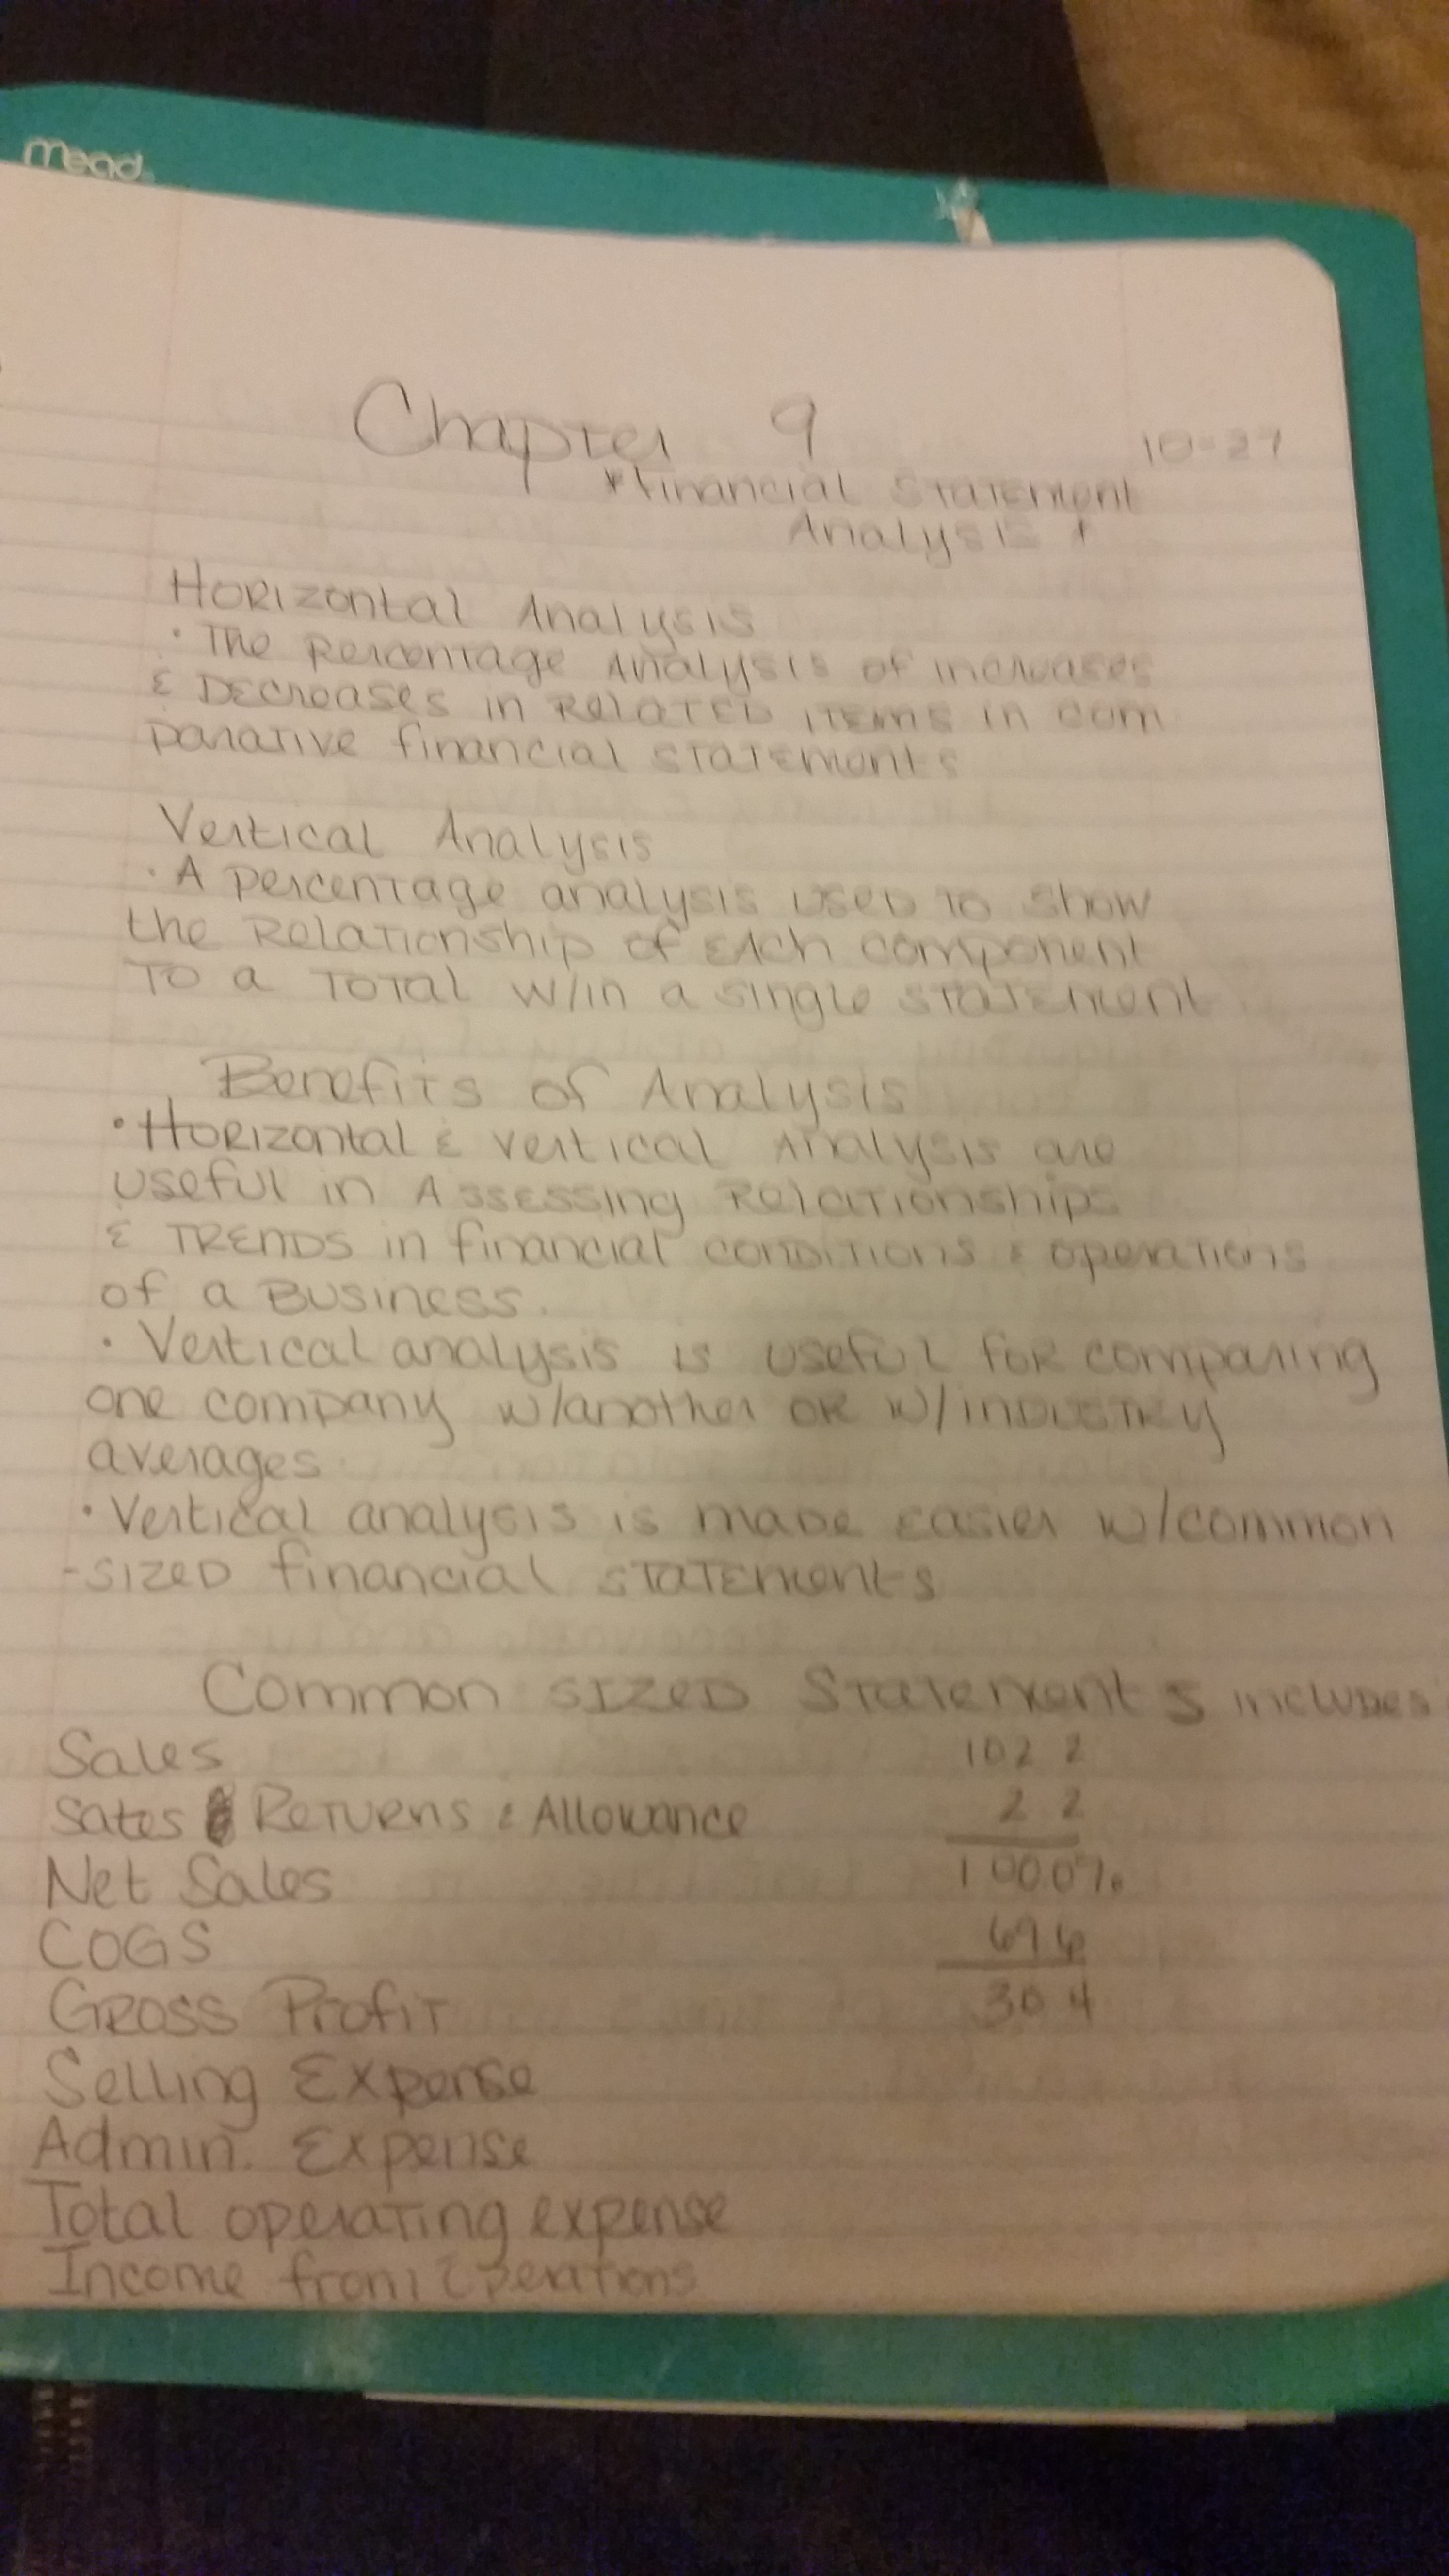 mead
Chapter 9
10-27
*Financial Statement
Analysis *
Horizontal Analysis
• The Percentage Analysis of increases
& Decreases in Related items in com
parative financial statements
Vertical Analysis
• A percentage analysis used to show
the Relationship of each component
To a Total w/in a single statement
Benefits of Analysis
• Horizontal & Vertical Analysis are
useful in Assessing Relationships
& TRENDS in financial conditions & operations
of a Business.
• Vertical analysis is useful for comparing
one company w/another or w/industry
averages
• Vertical analysis is made easier w/common
-sized financial statements
Common sized Statements includes
Sales 102 2
Sales Returns & Allowance 2 2
Net Sales 100 0%
COGS 69 6
Gross Profit 30 4
Selling Expense
Admin. Expense
Total operating expense
Income from Operations